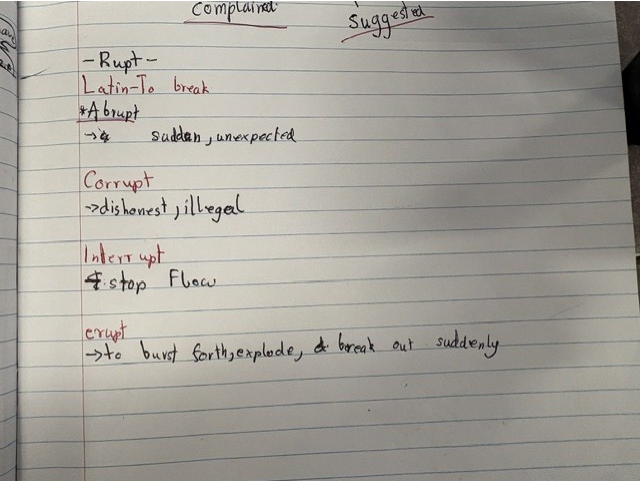 Complained Suggested
-Rupt-
Latin-To break
*Abrupt
→ sudden, unexpected
Corrupt
→dishonest, illegal
Interrupt
stop Flow
erupt
→to burst forth, explode, break out suddenly